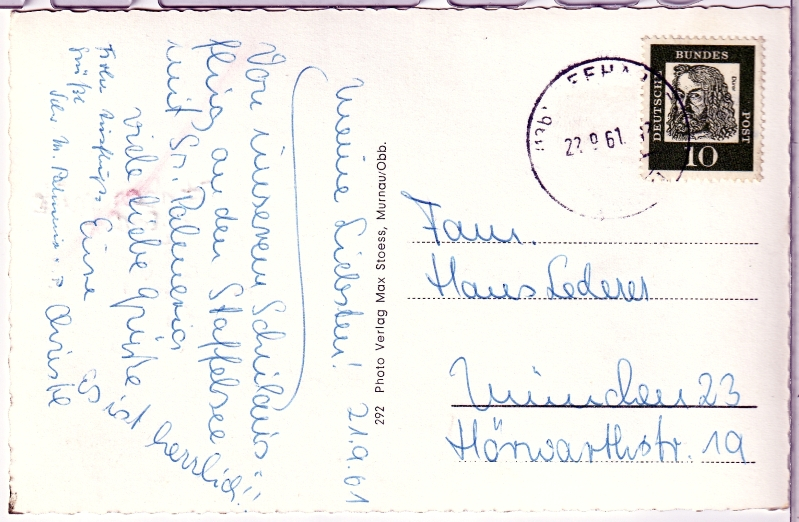 Meine Liebsten! 21.9.61
Von unserem Schulaus-
flug an den Staffelsee
mit Sr. Palmeria
viele liebe Grüße
Eure
Christe
Es ist herrlich!!
Grüße
292 Photo Verlag Max Stoess, Murnau/Obb.
DEUTSCHE
BUNDES
POST
10
Dürer
22.9.61
Fam.
Hans Lederer
München 23
Hörwarthstr. 19